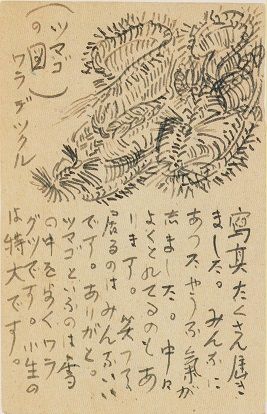 （ツマゴ
の図）
ワラヂツクル
寫真たくさん届き
ました。みんなに
あつたやうな氣が
しました。中々
よくとれてるのもあ
ります。笑つて
居るのはみんないい
です。ありがと。
ツマゴといふのは雪
の中をあるくワラ
グツです。小生の
は特大です。